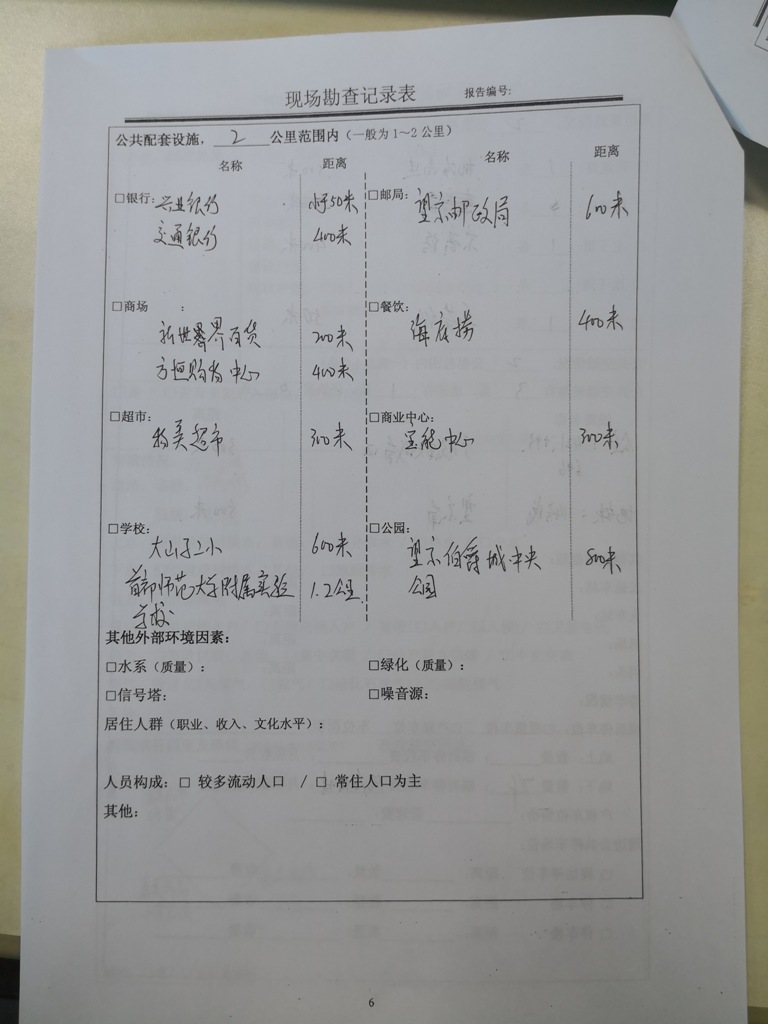 现场勘查记录表 报告编号:
公共配套设施, 2 公里范围内(一般为1~2公里)
名称 距离 名称 距离
□银行: 兴业银行 小于50米 □邮局: 望京邮政局 600米
交通银行 400米
□商场 : □餐饮:
新世界百货 200米 海底捞 400米
方恒购物中心 400米
□超市: □商业中心:
物美超市 300米 宝能中心 300米
□学校: □公园:
大山子二小 600米 望京伯爵城中央 800米
首都师范大学附属实验 1.2公里 公园
学校
其他外部环境因素:
□水系(质量): □绿化(质量):
□信号塔: □噪音源:
居住人群(职业、收入、文化水平):
人员构成: □ 较多流动人口 / □ 常住人口为主
其他:
6